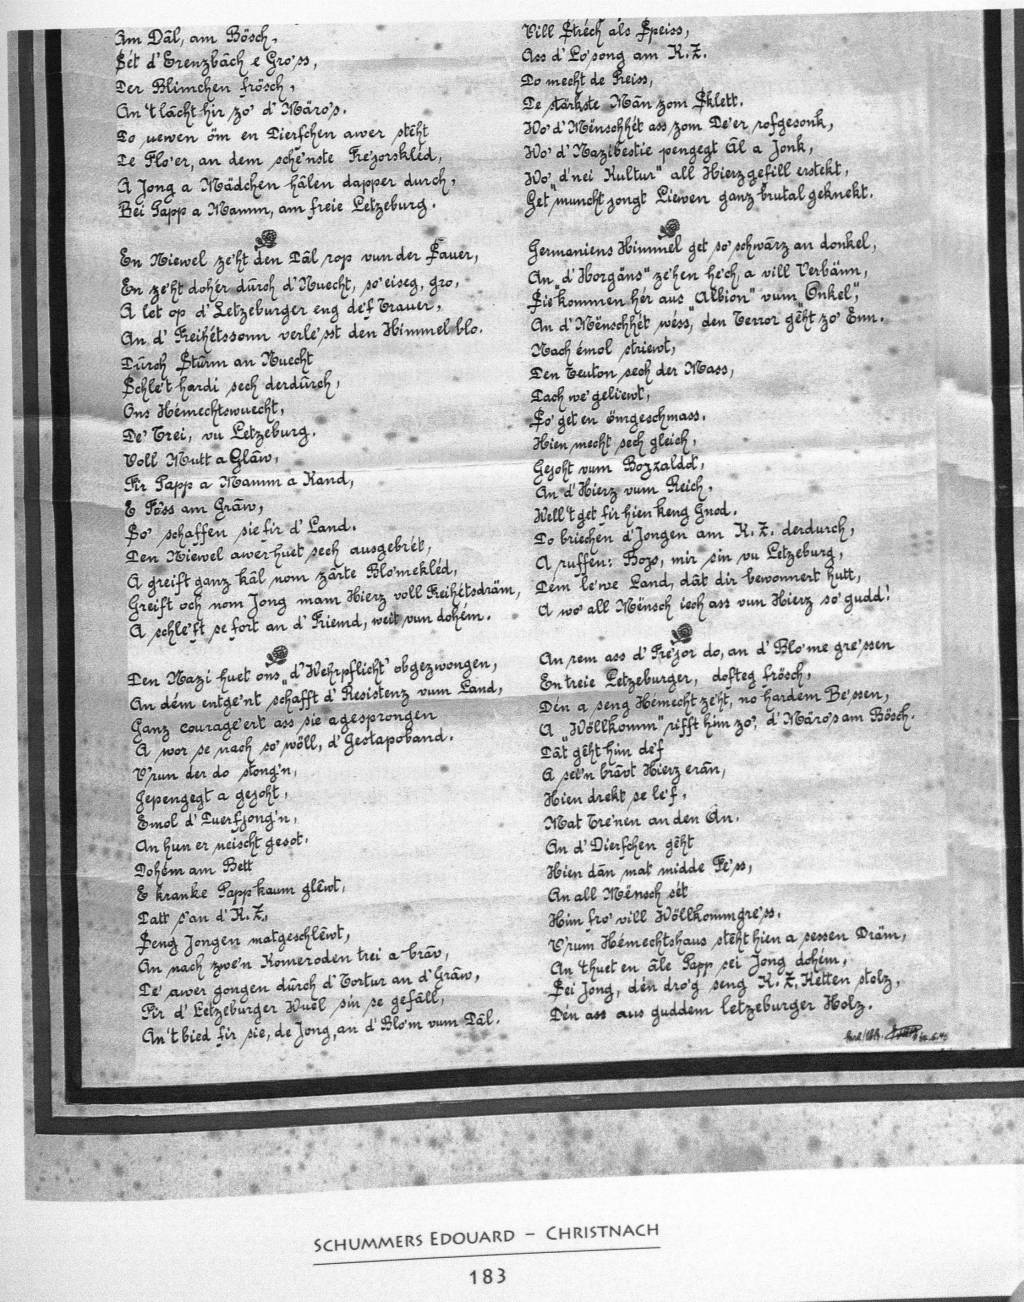 Am Däl, am Bösch,
Sét d'Grenzbäch e Gro'ss,
Der Blimchen frösch,
An 't lächt hir zo' d'Märo's.
Do uewen öm en Dierfchen awer stéht
De Flo'er, an dem sche'nste Fre'jorskléd,
A Jong a Mädchen hälen dapper durch,
Bei Papp a Mamm, am freie Letzeburg.
En Niewel ze'ht den Däl rop vun der Sauer,
En ze'ht doher dürch d'Nuecht, so' eiseg, gro,
A let op d'Letzeburger eng de'f Trauer,
An d'Freihétssonn verle'sst den Himmel blo.
Dürch Sturm an Nuecht
Schle't hardi sech derdürch,
Ons Hémechtswuecht,
De' Trei, vu Letzeburg.
Voll Mutt a Gläw,
Fir Papp a Mamm a Kand,
E Föss am Gräw,
So' schaffen sie fir d'Land.
Den Niewel awer huet sech ausgebrét,
A greift ganz käl nom zärte Blo'mekléd,
Greift och nom Jong mam Hierz voll Freihétsdräm,
A schle'ft se fort an d'Friemd, weit vun dohém.
Den Nazi huet ons „d'Wehrpflicht" obgezwongen,
An dém entge'nt schafft d'Resistenz vum Land,
Ganz courage'ert ass sie agesprongen
A wor se nach so' wöll, d'Gestapoband.
V'run der do stong'n,
Gepengegt a gejoht,
Emol d'Duerfjong'n,
An hun er neischt gesot.
Dohém am Bett
E kranke Papp kaum gléwt,
Datt s'an d'K.Z,
Seng Jongen matgeschléwt,
An nach zwe'n Komeroden trei a bräv,
De' awer gongen dürch d'Tortur an d'Gräw,
Fir d'Letzeburger Wuel sin se gefäll,
An 't bied fir sie, de Jong, an d'Blo'm vum Däl.
Vill Strech als Speiss,
Ass d'Lo'song am K.Z.
Do mecht de Preiss,
De stärkste Män zom Sklett.
Wo' d'Mënschhét ass zom De'er rofgesonk,
Wo' d'Nazibestie pengegt Äl a Jonk,
Wo' „d'nei Kultur" all Hierzgefill erstekt,
Get muncht jongt Liewen ganz brutal geknekt.
Germaniens Himmel get so' schwärz an donkel,
An „d'Horgäns" ze'hen he'ch, a vill Verbänn,
Sie „kommen her aus Albion" vum „Onkel",
An d'Mënschhét wéss, den Terror géht zo' Enn.
Nach émol striewt,
Den Teuton sech der Mass,
Dach we' geliewt,
So' get en ömgeschmass.
Hien mecht sech gleich,
Gejoht vum Bozzaldot,
An d'Hierz vum Reich,
Well 't get fir hien keng Gnod.
Do briechen d'Jongen am K.Z. derdurch,
A ruffen: Boys, mir sin vu Letzeburg,
Dem le'we Land, dät dir bewonnert hutt,
A wo' all Mënsch iech ass vun Hierz so' gudd!
An rem ass d'Fre'jor do, an d'Blo'me gre'ssen
En treie Letzeburger, dofteg frösch,
Dén a seng Hémecht ze'ht, no hardem Be'ssen,
A „Wöllkomm" rifft him zo', d'Märo's am Bösch.
Dät géht him de'f
A sei'n brävt Hierz erän,
Hien drekt se le'f,
Mat Tre'nen an den An.
An d'Dierfchen géht
Hien dän mat midde Fe'ss,
An all Mënsch sét
Him fro' vill Wöllkommgre'ss.
V'rum Hémechtshaus stéht hien a sessen Dräm,
An 't huet en äle Papp sei Jong dohém,
Sei Jong, dén dro'g seng K.Z. Ketten stolz,
Dén ass aus guddem letzeburger Holz.
SCHUMMERS EDOUARD – CHRISTNACH
183